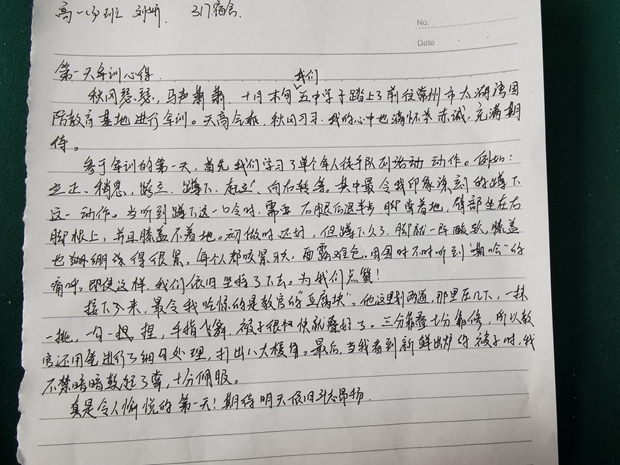 高一(3)班 刘昕 317宿舍
No.
Date
第一天军训心得
我们
秋风瑟瑟，马声萧萧，十月末旬五中学子踏上了前往常州市太湖湾国
防教育基地进行军训。天高气爽，秋风习习，我的心中也满怀着赤诚，充满期
待。
参于军训的第一天，首先我们学习了单个军人徒手队列活动动作。例如：
立正、稍息、跨立、蹲下、起立、向右转等，其中最令我印象深刻的蹲下
这一动作。当听到蹲下这一口令时，需要右腿后退半步，脚尖着地，臀部坐在右
脚根上，并且膝盖不着地。初做时还好，但蹲下久了，脚就一阵酸软，膝盖
也绷得很累，每个人都咬紧牙，面露难色，周围时不时听到"嘶哈"的
痛呼，即使这样，我们依旧坚持了下去。为我们点赞！
接下来，最令我吃惊的是教官的"豆腐块"。他这里划两道，那里压几下，一抹
一挑，一勾一捏，手指飞舞，被子很快就叠好了。三分靠叠七分靠修，所以教
官还用笔进行了细节处理，打出八大棱角。最后，当我看到新鲜出炉的被子时，我
不禁暗暗鼓起了掌，十分佩服。
真是令人愉悦的第一天！期待明天依旧斗志昂扬